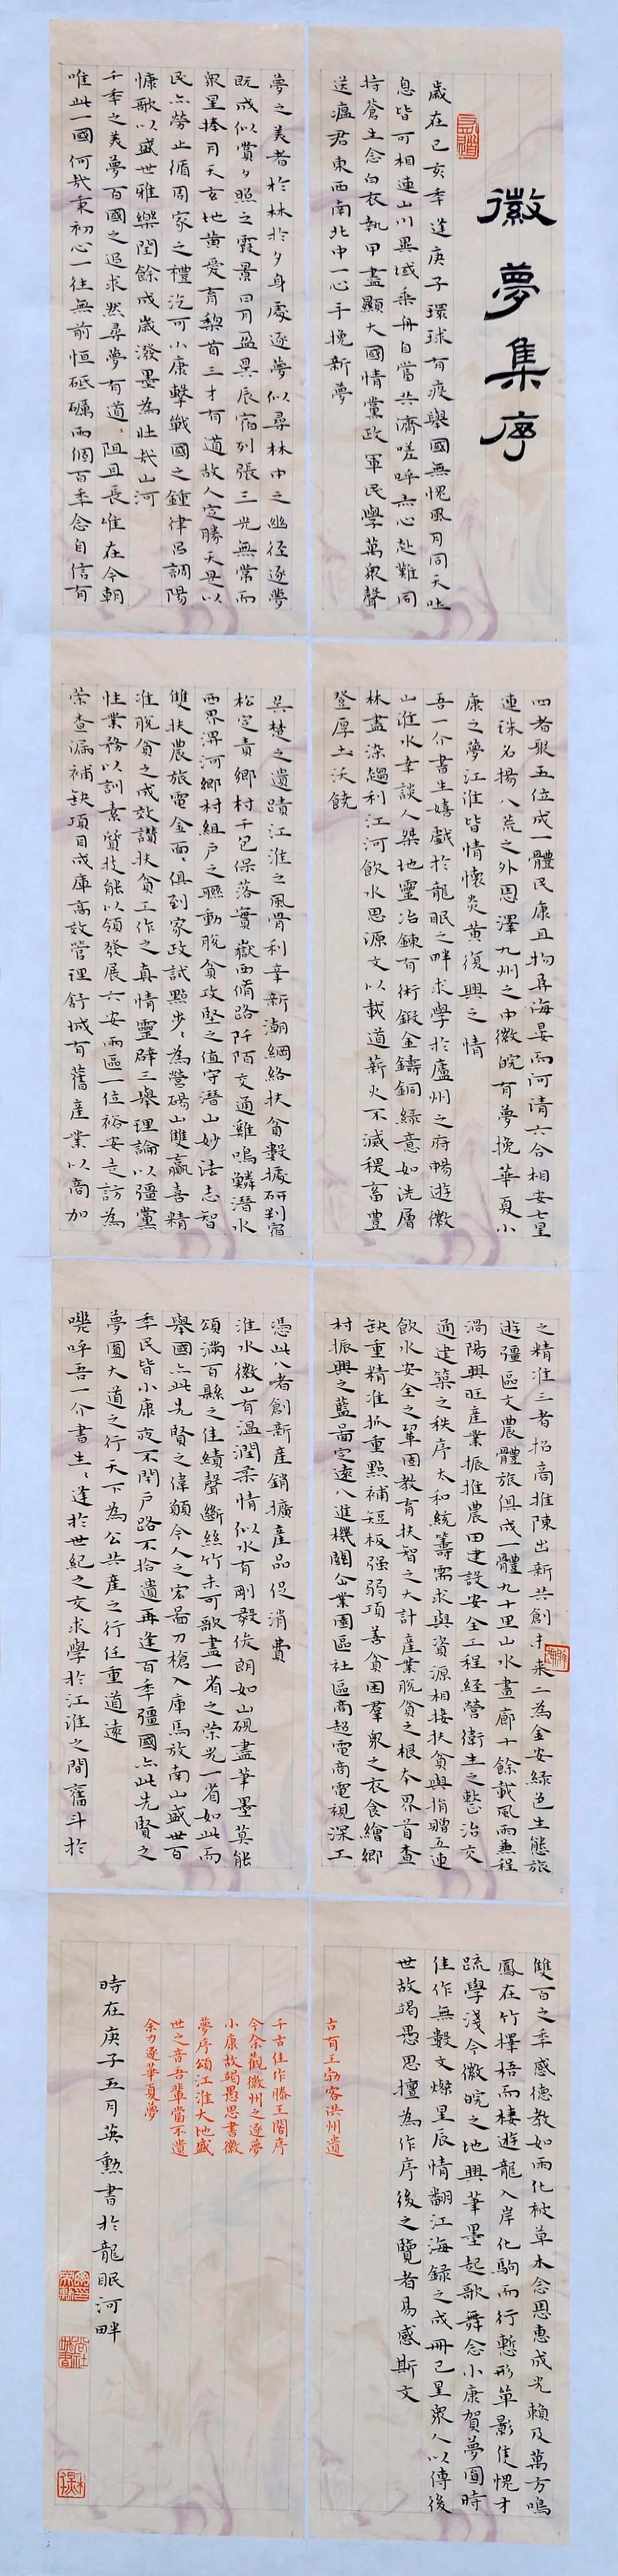 徽夢集序
歲在己亥年逢庚子環球有疫舉國無愧風月同天吐
息皆可相連山川異域乘舟自當共濟嗟呼赤心赴難同
持蒼生念白衣執甲盡顯大國情黨政軍民學萬眾聲
送瘟君東西南北中一心手挽新夢
夢之美者於林於夕身處逐夢似尋林中之幽徑逐夢
既成似賞夕照之霞景日月盈昃辰宿列張三光無常而
眾星捧月天玄地黃愛育黎首三才有道故人定勝天是以
民亦勞止循周家之禮汔可小康擊戰國之鍾律呂調陽
慷歌以盛世雅樂閏餘成歲潑墨為壯哉山河
千年之美夢百國之追求然尋夢有道道阻且長唯在今朝
唯此一國何哉秉初心一往無前恒砥礪兩個百年念自信有
四者聚五位成一體民康且物阜海晏而河清六合相安七星
連珠名揚八荒之外恩澤九州之中徽皖有夢挽華夏小
康之夢江淮皆情懷炎黃復興之情
吾一介書生嬉戲於龍眠之畔求學於廬州之府暢遊徽
山淮水幸談人桀地靈冶鍊有術鍛金鑄銅綠意如洗層
林盡染趨利江河飲水思源文以載道薪火不滅稷畜豐
登厚土沃饒
吳楚之遺蹟江淮之風骨利辛新潮網絡扶貧數據研判宿
松定責鄉村干包保落實嶽西脩路阡陌交通雞鳴鱗潛水
西界渒河鄉村組戶之聯動脫貧攻堅之值守潛山妙法志智
雙扶農旅電金面面俱到家政試點步步為營碭山雙贏喜精
准脫貧之成效讚扶貧工作之真情靈璧三舉理論以彊黨
性業務以訓素質技能以領發展六安兩區一位裕安走訪為
榮查漏補缺項目成庫高效管理舒城有舊產業以商加
之精准三者招商推陳出新共創未來二為金安綠色生態旅
遊彊區文農體旅俱成一體九十里山水畫廊十餘載風雨兼程
渦陽興旺產業振推農田建設安全工程經營衛生之整治交
通建築之秩序太和統籌需求與資源相接扶貧與捐贈互連
飲水安全之鞏固教育扶智之大計產業脫貧之根本界首查
缺重精准抓重點補短板强弱項善貧困羣眾之衣食繪鄉
村振興之藍啚定遠八進機關企業園區社區商超電商電視深工
憑此八者創新產銷擴產品促消費
淮水徽山有溫潤柔情似水有剛毅俊朗如山硯盡筆墨莫能
頌滿百縣之佳績聲斷絲竹未可歌盡一省之榮光一省如此而
舉國亦此先賢之偉願今人之宏啚刀槍入庫馬放南山盛世百
年民皆小康夜不閉戶路不拾遺再逢百年彊國亦此先賢之
夢圓大道之行天下為公共產之行任重道遠
嘆呼吾一介書生生逢於世紀之交求學於江淮之間奮斗於
雙百之年感德教如雨化被草木念恩惠成光賴及萬方鳴
鳳在竹擇梧而棲遊龍入岸化駒而行慙形單影隻愧才
疏學淺今徽皖之地興筆墨起歌舞念小康賀夢圓時
佳作無數文燦星辰情翻江海録之成冊已呈眾人以傳後
世故竭愚思擅為作序後之覽者易感斯文
古有王勃客洪州遺
千古佳作滕王閣序
今余觀徽州之逐夢
小康故竭愚思書徽
夢序頌江淮大地盛
世之音吾輩當不遺
余力逐華夏夢
時在庚子五月英勳書於龍眠河畔